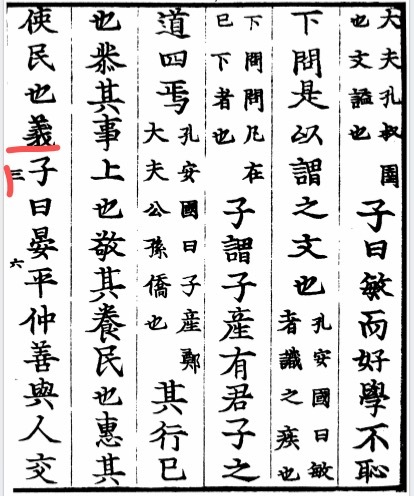 大夫孔叔圉也文謚也子曰敏而好學不恥
下問是以謂之文也孔安國曰敏者識之疾也
下問問凡在已下者也子謂子產有君子之
道四焉孔安國曰子產鄭大夫公孫僑也其行已
也恭其事上也敬其養民也惠其
使民也義三子曰六晏平仲善與人交